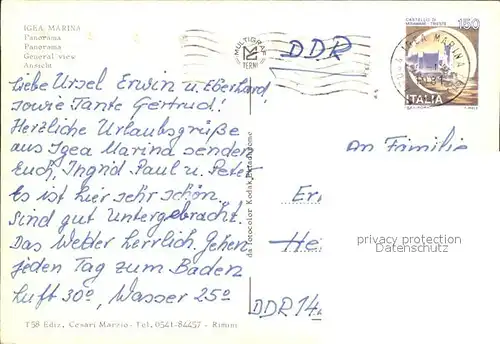 IGEA MARINA
Panorama
Panorama
General view
Ansicht
MULTIGRAF
TERNI
DDR
CASTELLO DI
MIRAMARE - TRIESTE
150
IGEA MARINA
ITALIA
Liebe Ursel Erwin u. Eberhard
sowie Tante Gertrud!
Herzliche Urlaubsgrüße
aus Igea Marina senden
Euch, Ingrid Paul u. Peter
Es ist hier sehr schön.
Sind gut Untergebracht.
Das Wetter herrlich. Gehen
jeden Tag zum Baden
Luft 30º, Wasser 25º
da fotocolor Kodak Ektachrome
An Familie
Er
He
DDR 14
privacy protection
Veikkos.com
T58 Ediz. Cesari Marzio - Tel. 0541-84457 - Rimini